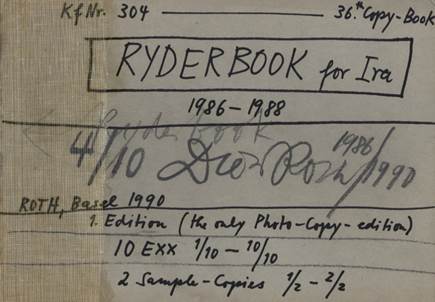 Kf Nr. 304 — 36.th Copy-Book
RYDERBOOK for Ira
1986-1988
Ryder Book
4/10 Dieter Roth 1986/1990
ROTH, Basel 1990
1. Edition (the only Photo-Copy-edition)
10 EXX 1/10 - 10/10
2 Sample-Copies 1/2 - 2/2